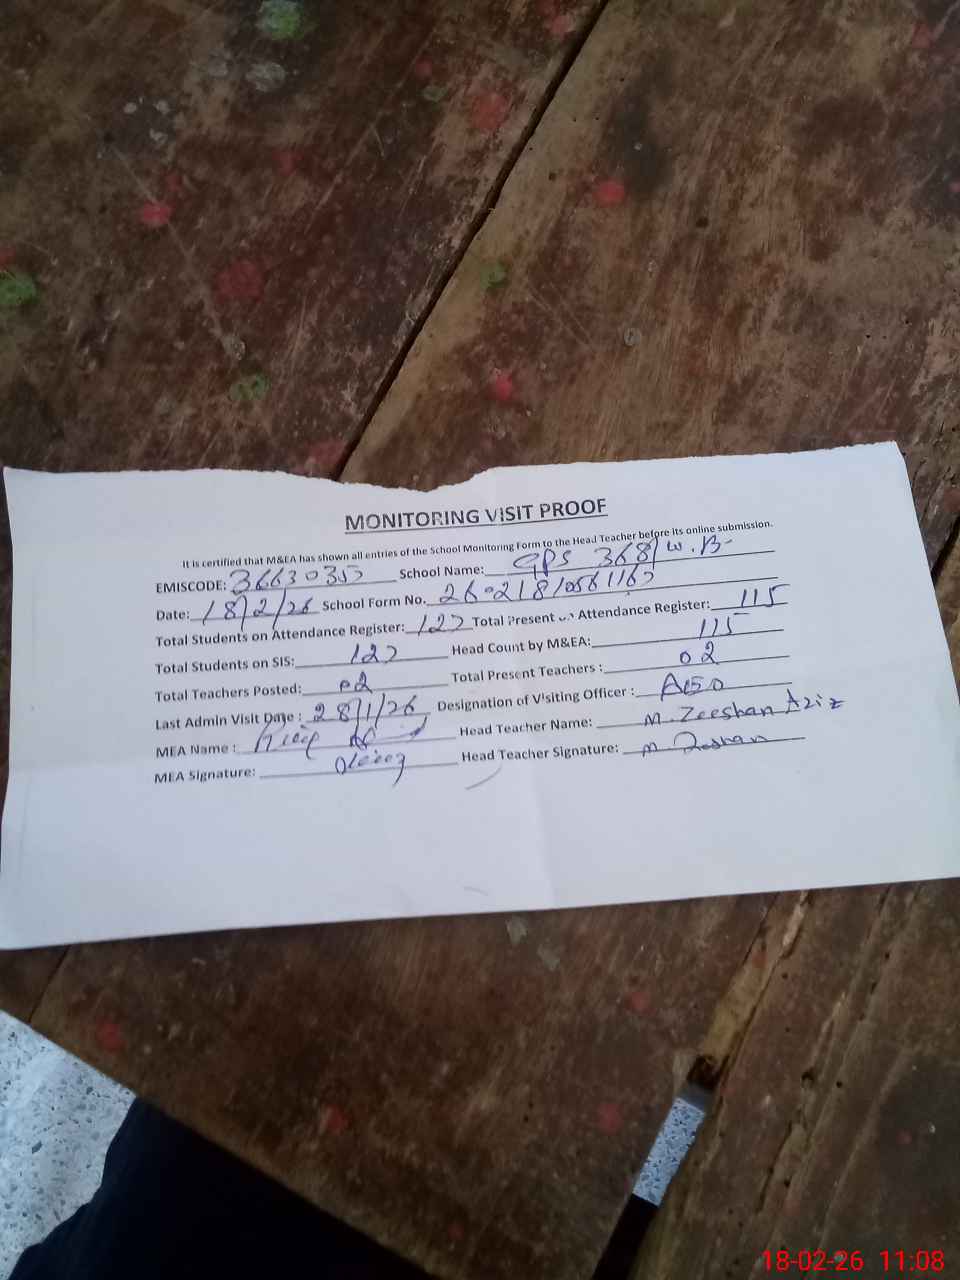 MONITORING VISIT PROOF
It is certified that M&EA has shown all entries of the School Monitoring Form to the Head Teacher before its online submission.
EMISCODE: School Name: GPS 368/W.B
Date: 18/2/26 School Form No.
Total Students on Attendance Register: Total Present Attendance Register: 115
Total Students on SIS: Head Count by M&EA: 115
Total Teachers Posted: 02 Total Present Teachers : 02
Last Admin Visit Date : 28/1/26 Designation of Visiting Officer : AEO
MEA Name : Head Teacher Name: M. Zeeshan Aziz
MEA Signature: Head Teacher Signature:
18-02-26 11:08